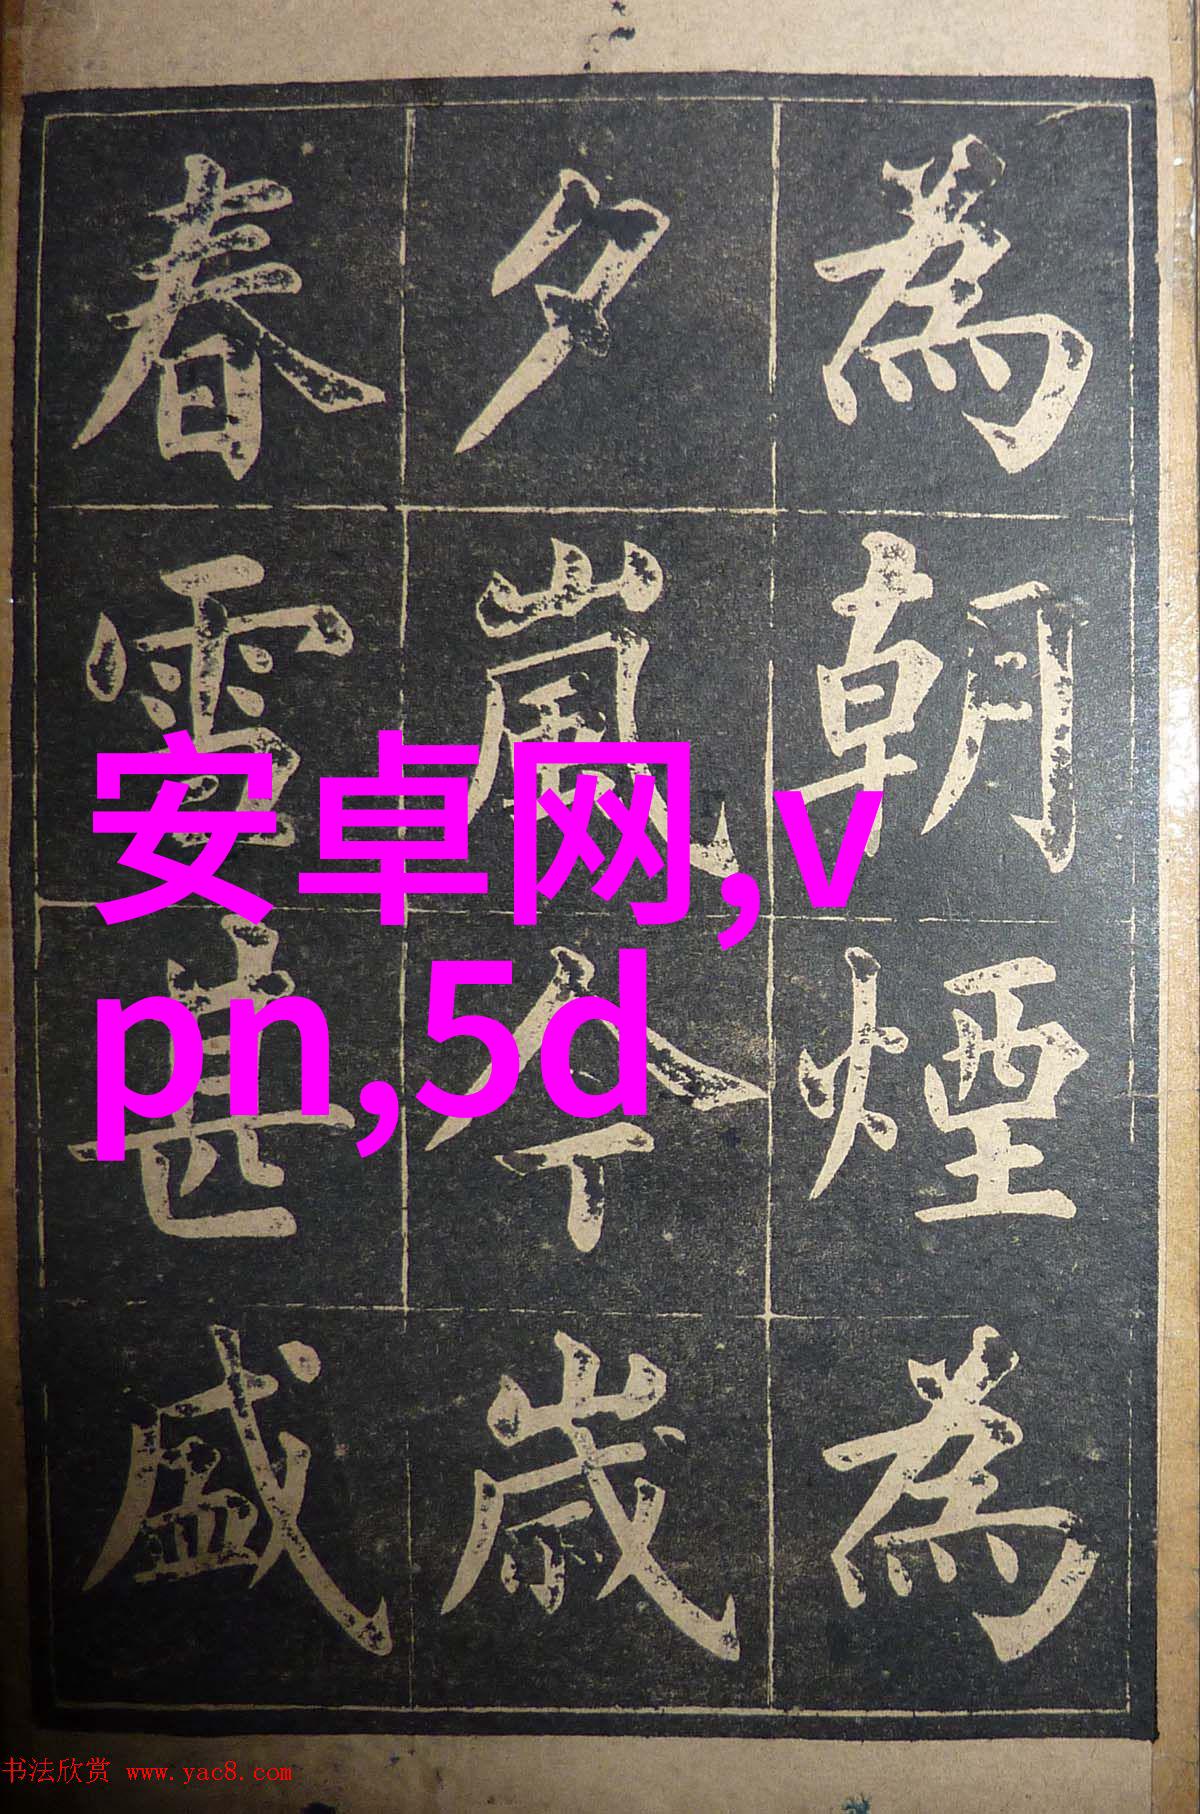 為朝煙為
夕嵐今歳
春雪甚盛
安卓网,v
pn,5d
书法欣赏 www.yac8.com